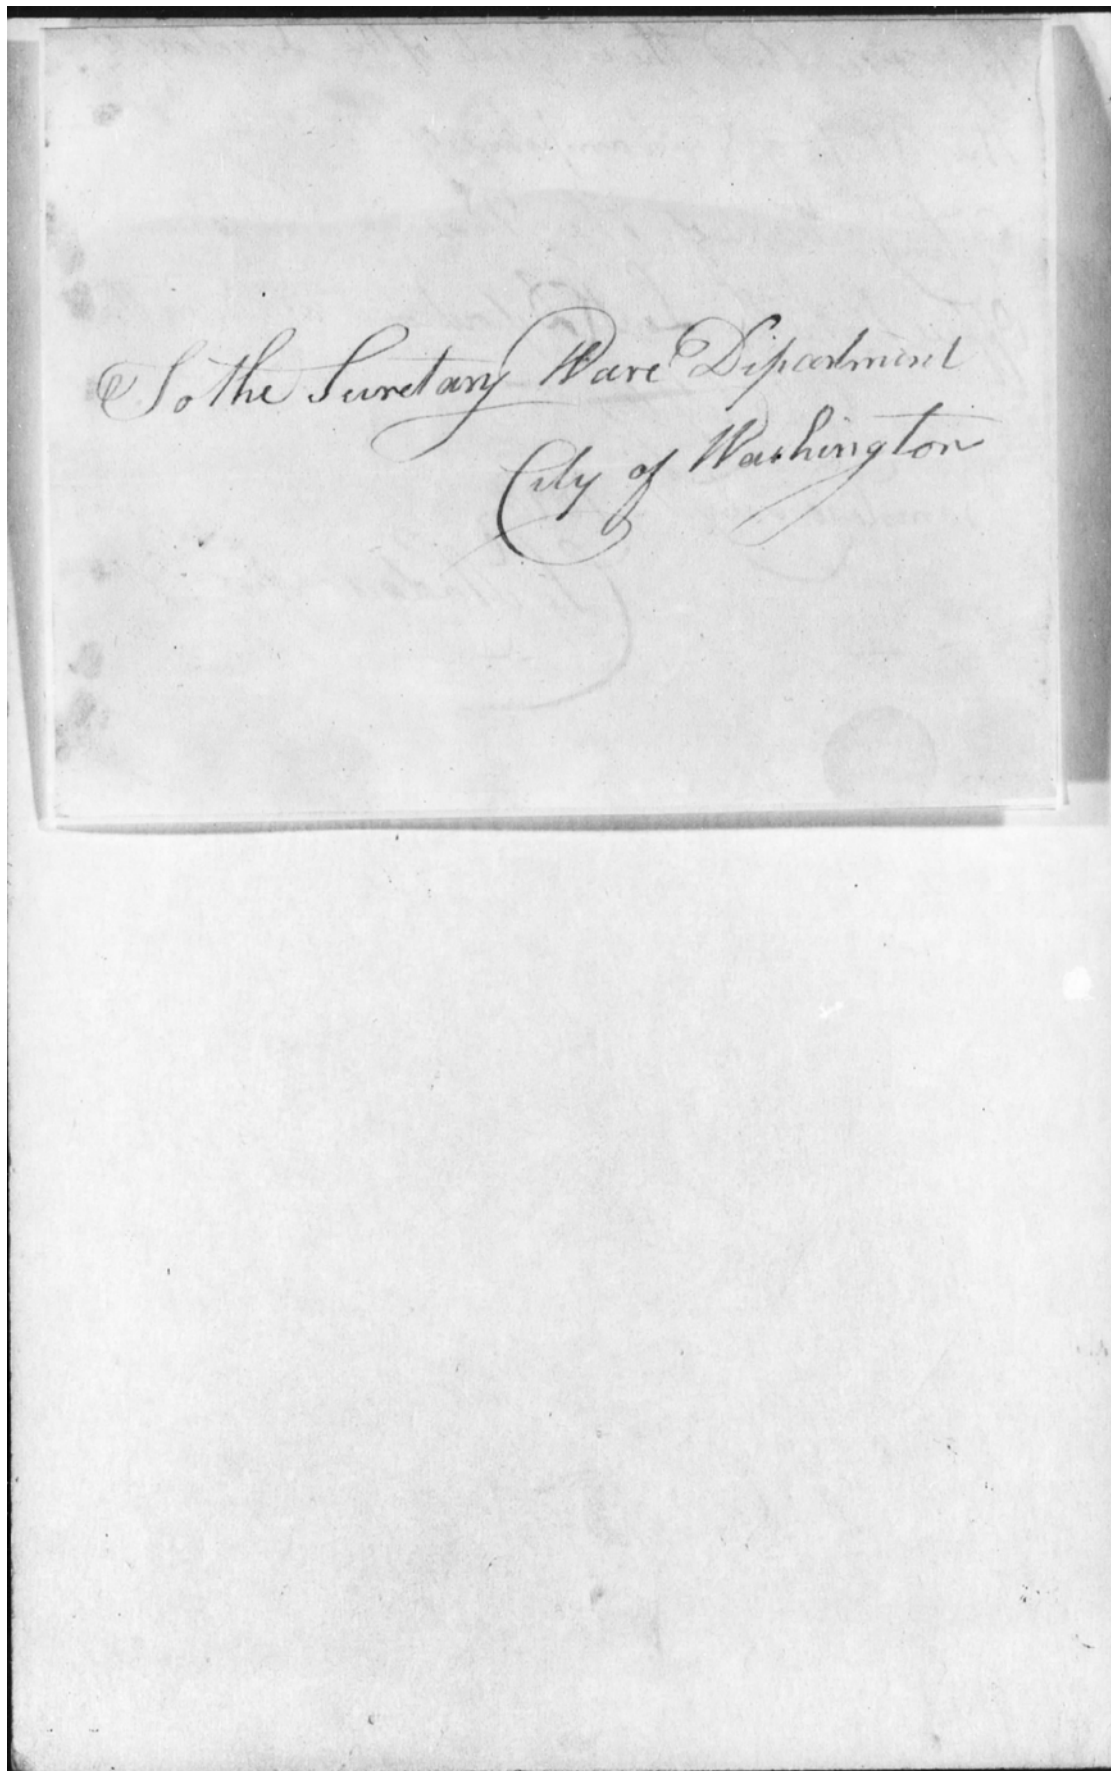 To the Secretary Ware Department
City of Washington